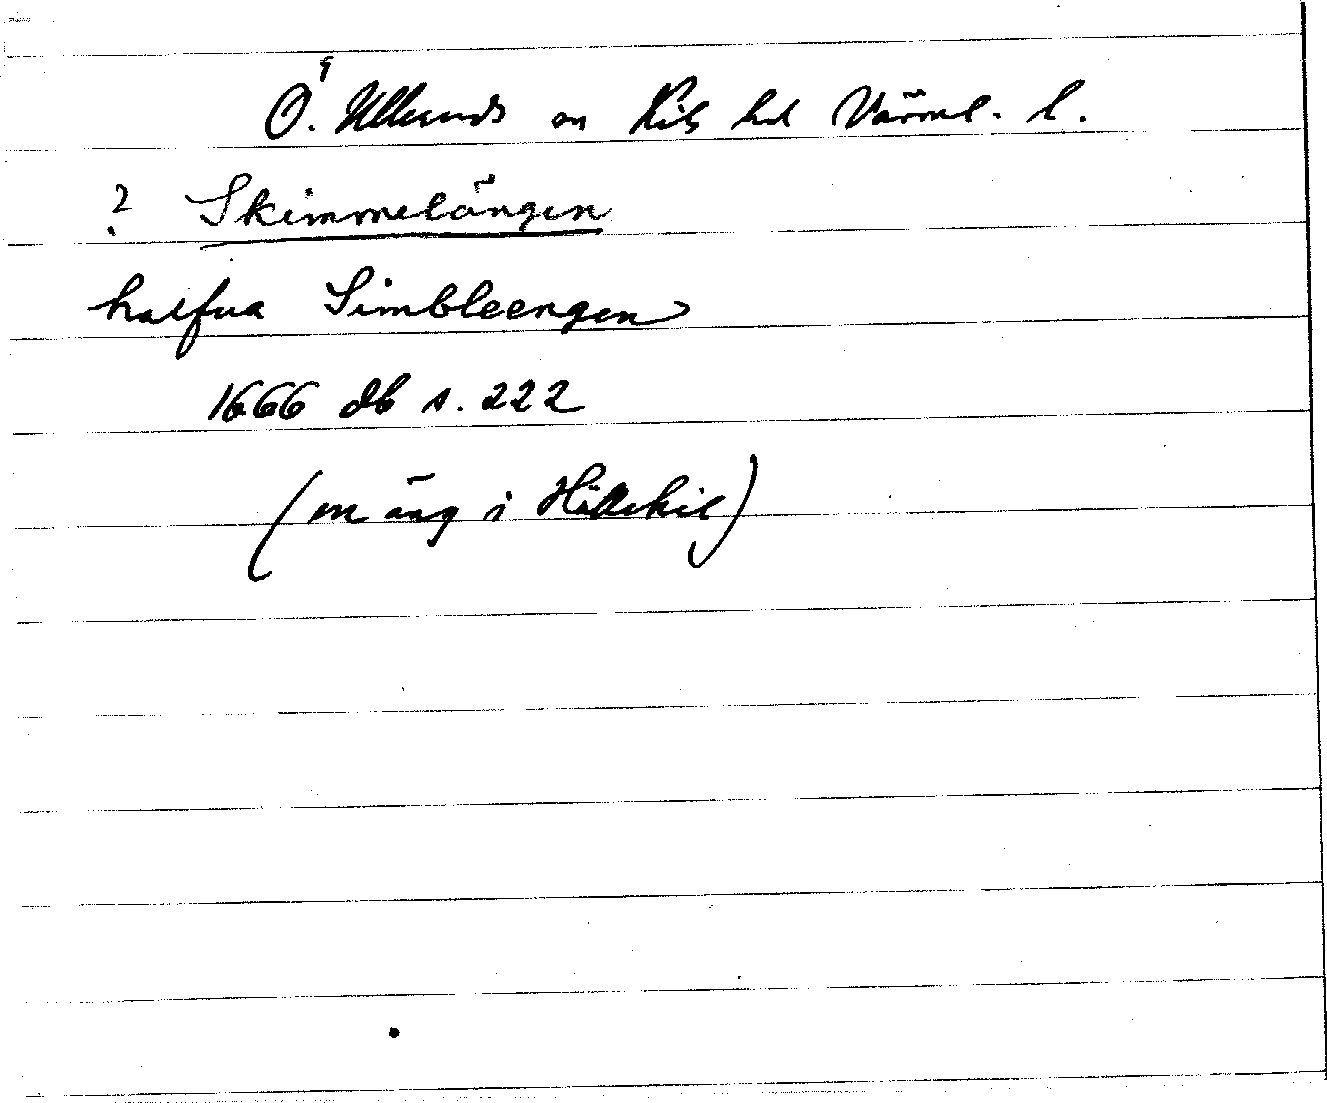 Ö. Ulleruds sn Kils hd Värml. l.
? Skimmelängen
halfua Simbleengen
1666 db s. 222
(en äng i Hällekil)